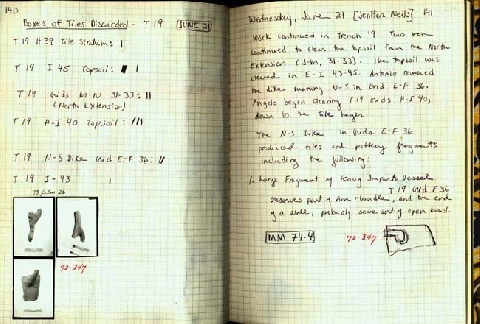 140
Boxes of Tiles Discarded - T 19 JUNE 21
T 19 H 39 Tile Stratum: I
T 19 I 45 Topsoil: I
T 19 Grids M-N 31-33: II
(North Extension)
T 19 H-I 40 Topsoil: III
T 19 N-S Dike Grid E-F 36: II
T 19 I-43 I
73 film 26
73-247
Wednesday, June 21 [Jenifer Neils] 141
Work continued in Trench 19. Two men
continued to clear the topsoil from the North
Extension 31-33). The topsoil was
cleared in E-I 43-45. Antonio removed
the dike running N-S in Grid E-F 36.
Angelo began clearing T19 Grids H-F 40,
down to the tile layer.
The N-S Dike in Grids E-F 36
produced tiles and pottery fragments
including the following:
1. Large Fragment of Impasto Vessel
T 19 Grid F 36
Preserves part of rim-handle, and the end
of a , probably some sort of open vessel.
73-247